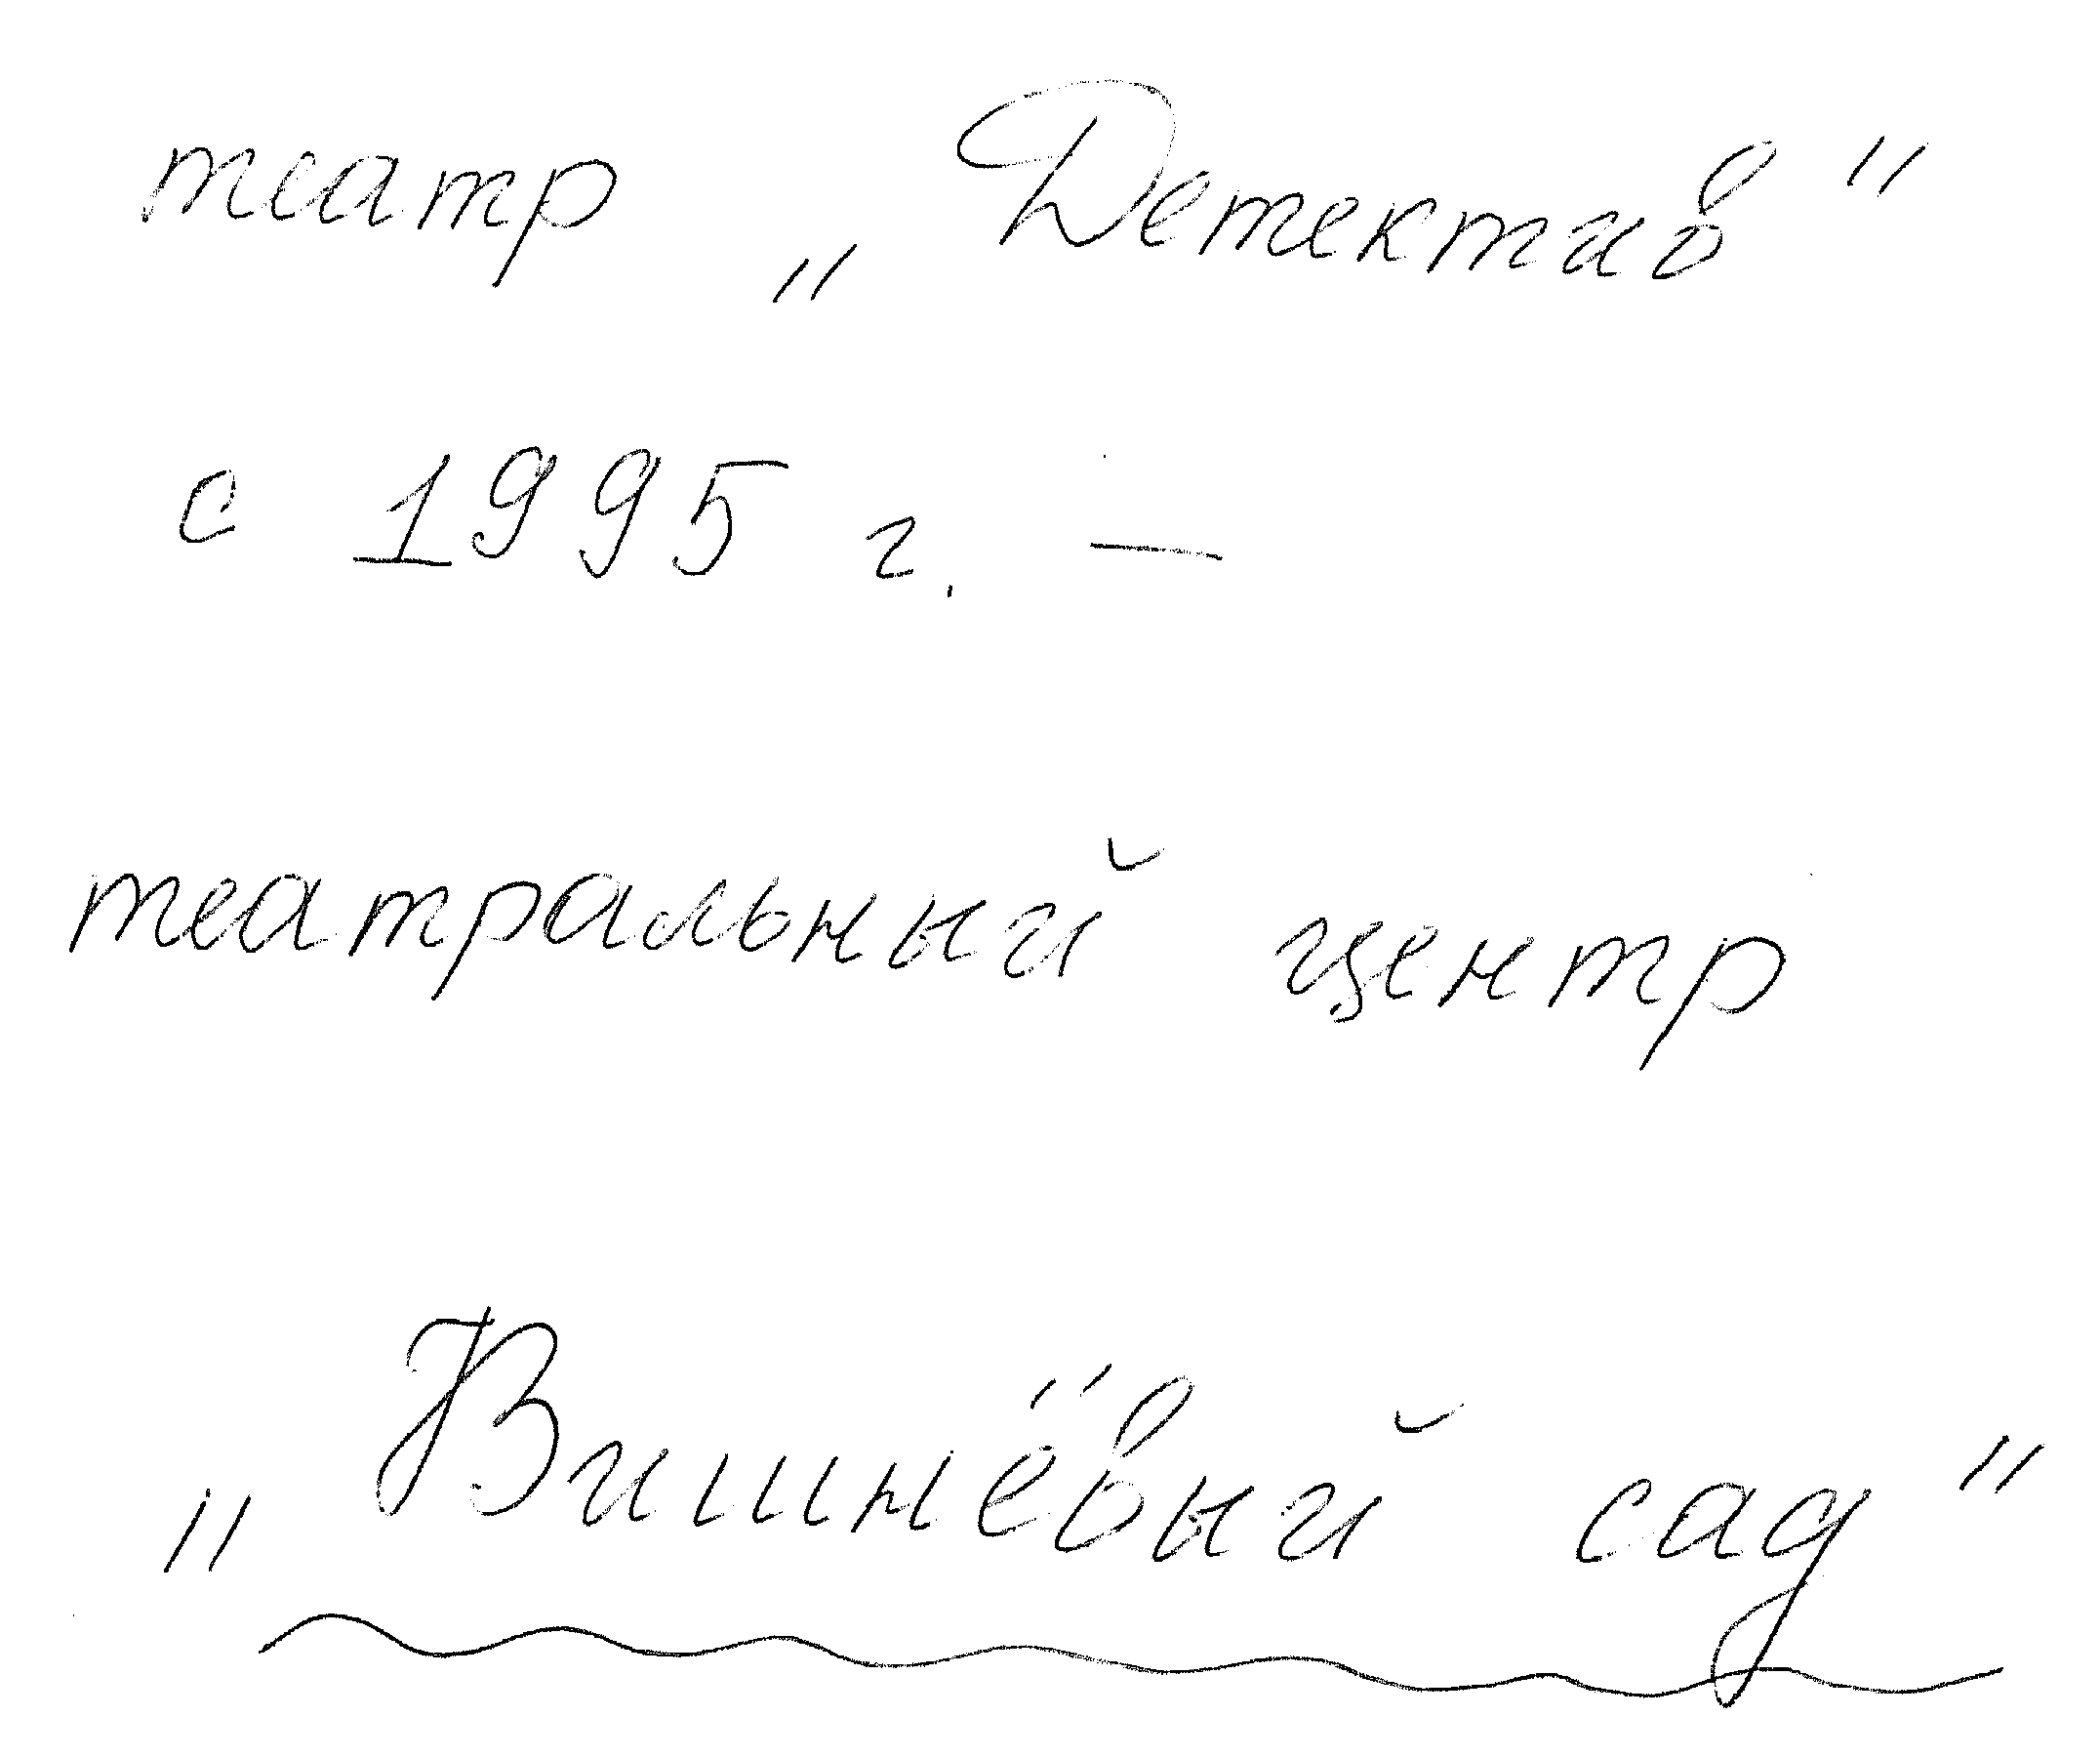 театр „Детектив"
с 1995 г. —
театральный центр
„Вишнёвый сад"